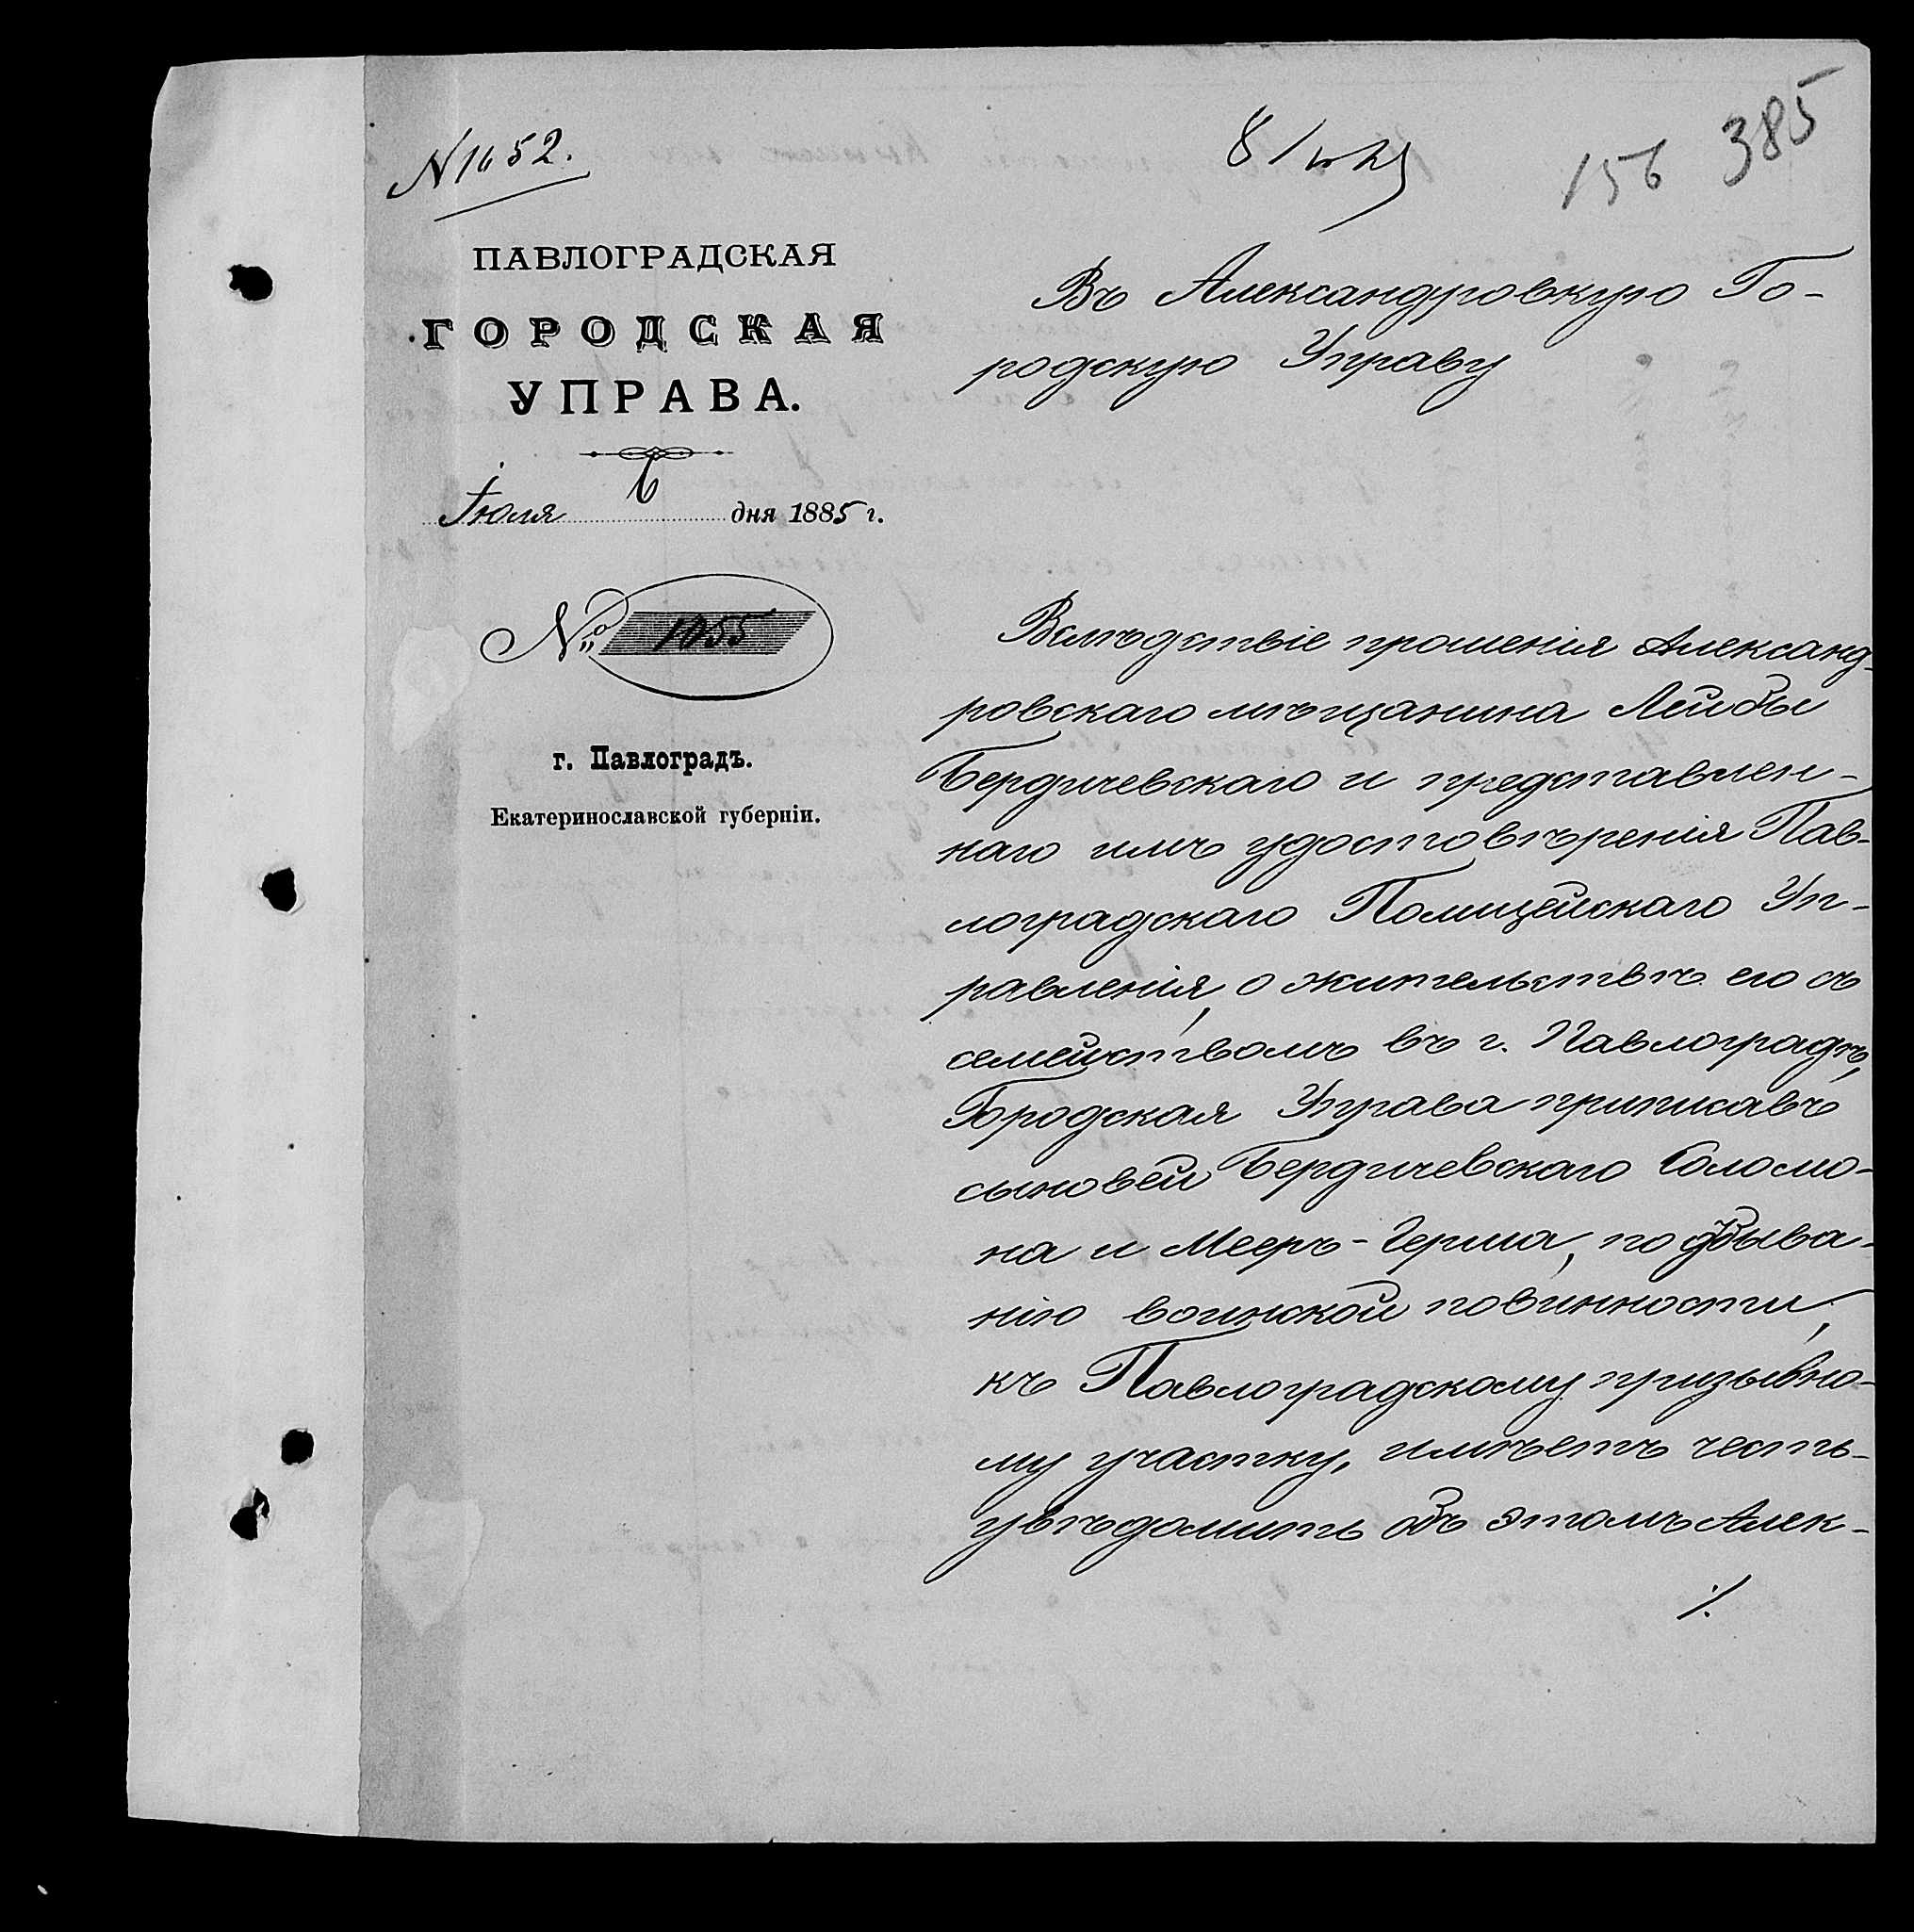 385
156
N 1652.
ПАВЛОГРАДСКАЯ
ГОРОДСКАЯ
УПРАВА.
Іюля 6 дня 1885 г.
№ 1055
г. Павлоградъ.
Екатеринославской губерніи.
Въ Александровкую Го-
родскую Управу
Вслѣдствіе прошенія Александ-
ровскаго мѣщанина Лейбы
Бердичевскаго и представлен-
наго имъ удостовѣренія Пав-
лоградскаго Полицейскаго Уп-
равленія, о жительствѣ его съ
семействомъ въ г. Павлоградѣ,
Городская Управа приписавъ
сыновей Бердичевскаго Соломо-
на и Мееръ-Герша, по отбыва-
нію воинской повинности,
къ Павлоградскому призывно-
му участку, имѣетъ честь
увѣдомить объ этомъ Алек-
./.